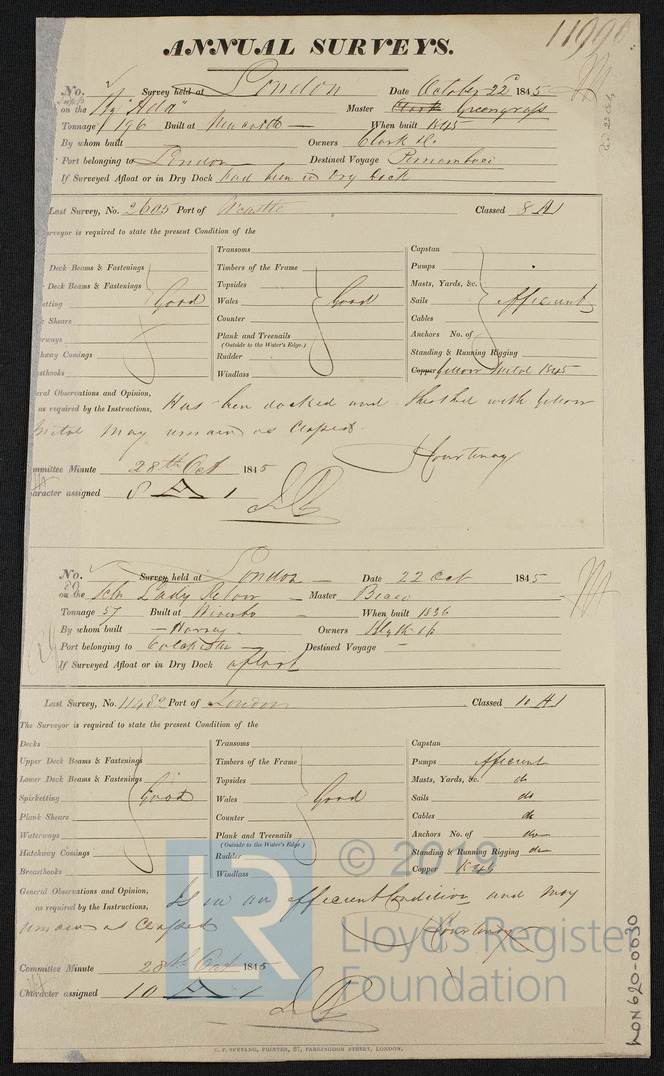 ANNUAL SURVEYS.
No. Survey held at London Date October 22d 1845
on the "Ada" Master Clark Greengrass
Tonnage 196 Built at Newcastle When built 1845
By whom built Owners Clark &c.
Port belonging to London Destined Voyage
If Surveyed Afloat or in Dry Dock had been in Dry Dock
Last Survey, No. 2605 Port of Classed 8 A1
urveyor is required to state the present Condition of the
Transoms Capstan
Deck Beams & Fastenings Timbers of the Frame Pumps
Deck Beams & Fastenings Topsides Masts, Yards, &c.
etting Good Wales Good Sails efficient
k Shears Counter Cables
rways Plank and Treenails Anchors No. of
(Outside to the Water's Edge.)
hway Comings Rudder Standing & Running Rigging
sthooks Windlass Copper Yellow Metal 1845
eral Observations and Opinion, Has been docked and sheathed with yellow
as required by the Instructions,
metal may remain as Classed.
Courtenay
ommittee Minute 28th Oct 1845
aracter assigned 8 A 1
No. Survey held at London Date 22 Oct 1845
on the Schr Lady Master
Tonnage 57 Built at Wivenhoe When built 1836
By whom built Harvey Owners Blyth & Co
Port belonging to Colchester Destined Voyage
If Surveyed Afloat or in Dry Dock afloat
Last Survey, No. 11482 Port of London Classed 10 A1
The Surveyor is required to state the present Condition of the
Decks Transoms Capstan
Upper Deck Beams & Fastenings Timbers of the Frame Pumps efficient
Lower Deck Beams & Fastenings Topsides Masts, Yards, &c. do
Spirketting Good Wales Good Sails do
Plank Shears Counter Cables do
Waterways Plank and Treenails Anchors No. of do
(Outside to the Water's Edge.)
Hatchway Comings Rudder Standing & Running Rigging do
Breasthooks Windlass Copper
General Observations and Opinion, Is in an efficient Condition and may
as required by the Instructions,
remain as Classed
Courtenay
Committee Minute 28th Oct 1845
Character assigned 10 A 1
C. F. SEYFANG, PRINTER, 57, FARRINGDON STREET, LONDON.
LON620-0030
LR
© 2019
Lloyd's Register
Foundation